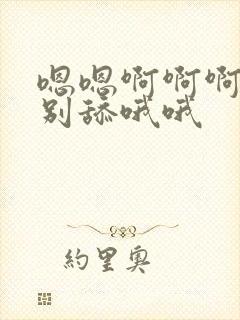 嗯嗯啊啊啊
别舔哦哦
约里奥